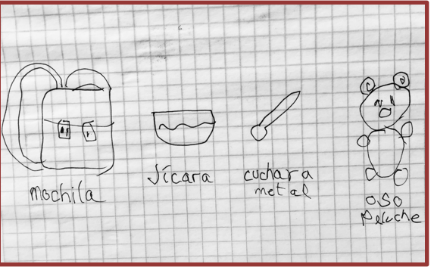 mochila
Jícara
cuchara
metal
oso
Peluche